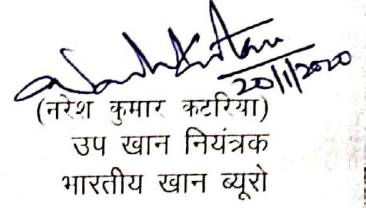 20/11/2020
(नरेश कुमार कटरिया)
उप खान नियंत्रक
भारतीय खान ब्यूरो